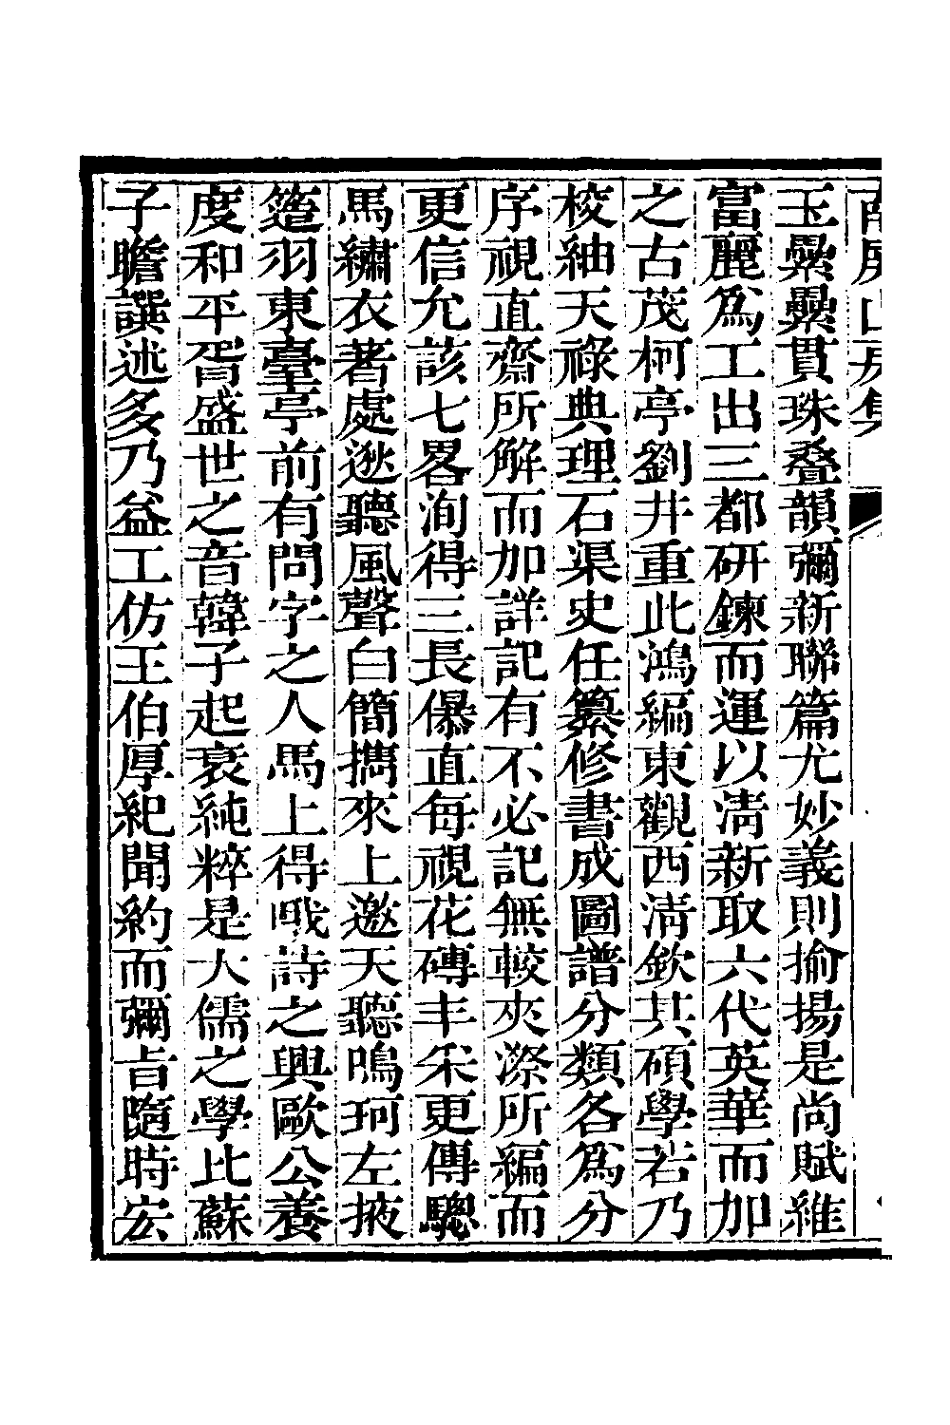 南屏山房集
玉纍纍貫珠叠韻彌新聯篇尤妙義則揄揚是尚賦維
富麗爲工出三都研鍊而運以淸新取六代英華而加
之古茂柯亭劉井重此鴻編東觀西淸欽其碩學若乃
校紬天祿典理石渠史任纂修書成圖譜分類各爲分
序視直齋所解而加詳記有不必記無較夾漈所編而
更信允該七畧洵得三長儤直每視花磚丰采更傳驄
馬繡衣著處逖聽風聲白簡擕來上邀天聽鳴珂左掖
簉羽東臺亭前有問字之人馬上得哦詩之興歐公養
度和平胥盛世之音韓子起衰純粹是大儒之學比蘇
子瞻譔述多乃益工仿王伯厚紀聞約而彌旨隨時宏